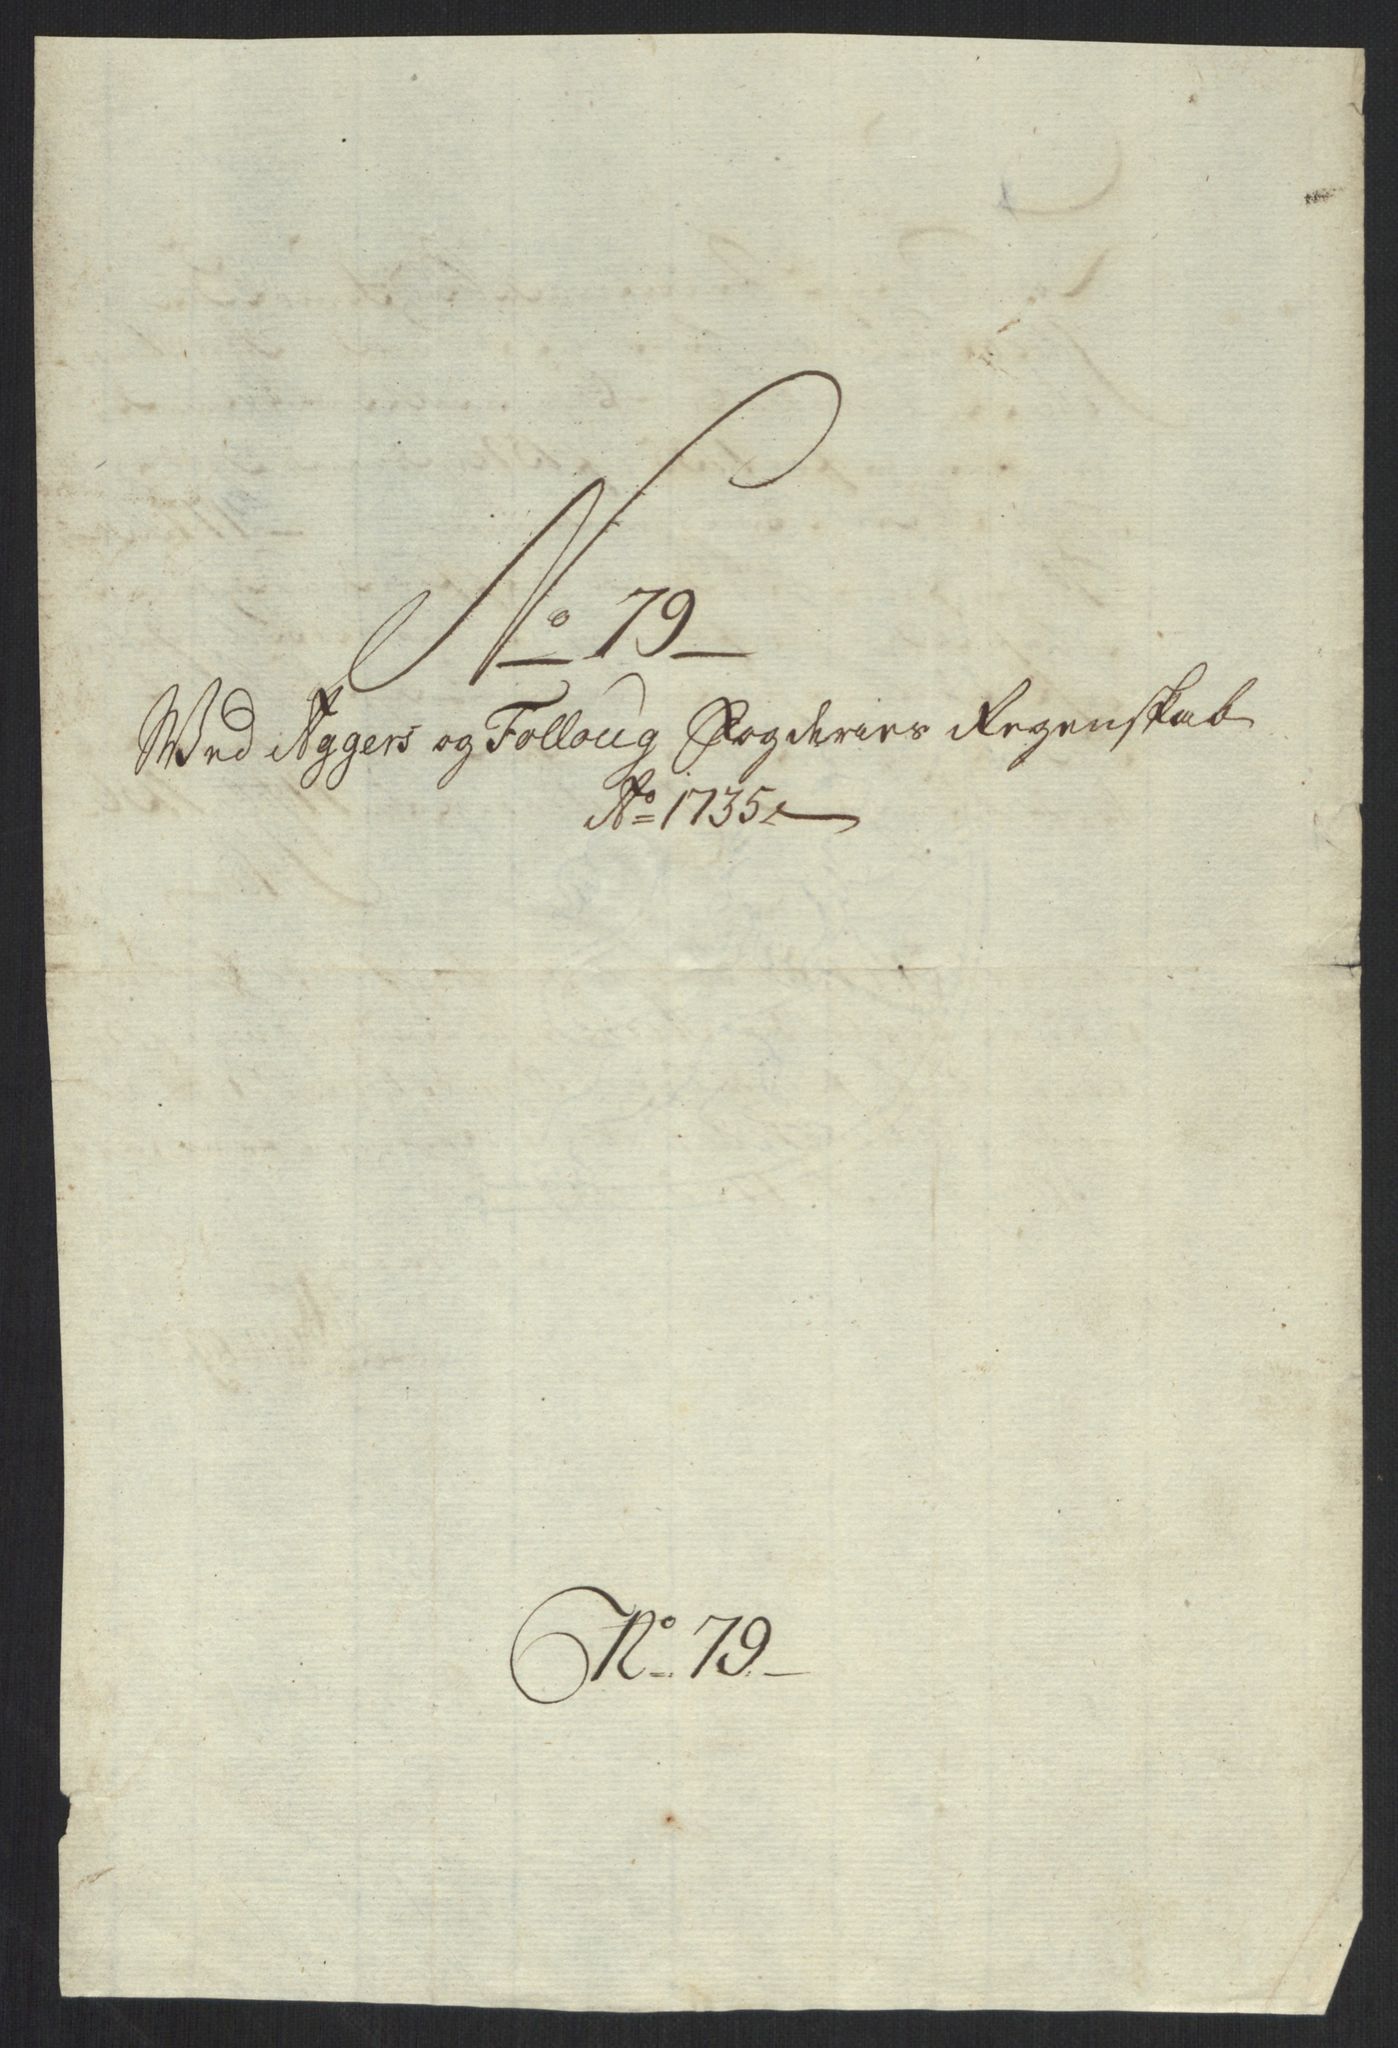 No 79
Wed Aggers og Follaug Fogderies Regenskab
Ao 1735
No 79